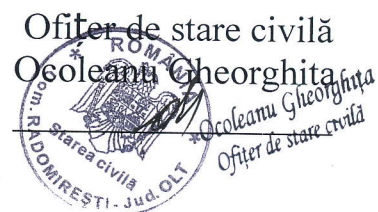 Ofițer de stare civilă
Ocoleanu Gheorghița
* ROMÂNIA *
Com. RADOMIREȘTI - Jud. OLT
Starea civilă
Ocoleanu Gheorghița
Ofițer de stare civilă